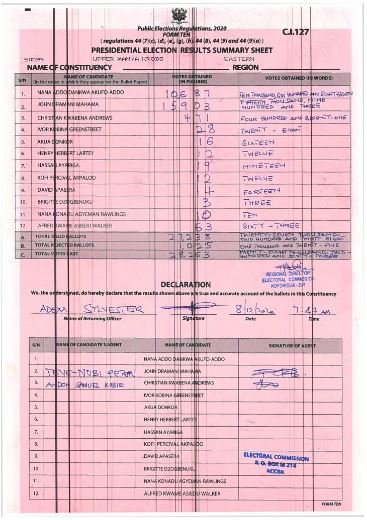 Public Elections Regulations, 2020
FORM TEN
C.I.127
( regulations 44 (7)(c), (d), (e), (g), (h), 44 (8), 44 (9) and 44 (9)(a) )
PRESIDENTIAL ELECTION RESULTS SUMMARY SHEET
UPPER MANYA KROBO EASTERN
NAME OF CONSTITUENCY REGION
S/N NAME OF CANDIDATE VOTES OBTAINED VOTES OBTAINED (IN WORDS)
(In the order in which they appear on the Ballot Paper) (IN FIGURES)
1. NANA ADDO DANKWA AKUFO-ADDO 10687 TEN THOUSAND, SIX HUNDRED AND EIGHTY SEVEN
2. JOHN DRAMANI MAHAMA 15903 FIFTEEN THOUSAND, NINE HUNDRED AND THREE
3. CHRISTIAN KWABENA ANDREWS 471 FOUR HUNDRED AND SEVENTY-ONE
4. IVOR KOBINA GREENSTREET 28 TWENTY - EIGHT
5. AKUA DONKOR 16 SIXTEEN
6. HENRY HERBERT LARTEY 12 TWELVE
7. HASSAN AYARIGA 19 NINETEEN
8. KOFI PERCIVAL AKPALOO 12 TWELVE
9. DAVID APASERA 14 FORTEEN
10. BRIGITTE DZOGBENUKU 3 THREE
11. NANA KONADU AGYEMAN-RAWLINGS 10 TEN
12. ALFRED KWAME ASIEDU WALKER 63 SIXTY - THREE
A. TOTAL VALID BALLOTS 27238 TWENTY-SEVEN THOUSAND, TWO HUNDRED AND THIRTY EIGHT
B. TOTAL REJECTED BALLOTS 1025 ONE THOUSAND AND TWENTY-FIVE
C. TOTAL VOTES CAST 28263 TWENTY-EIGHT THOUSAND, TWO HUNDRED AND SIXTY THREE
REGIONAL DIRECTOR
ELECTORAL COMMISSION
KOFORIDUA - E/R
DECLARATION
We, the undersigned, do hereby declare that the results shown above are true and accurate account of the ballots in this Constituency
SYLVESTER 8/12/2020 AM
Name of Returning Officer Signature Date Time
S/N NAME OF CANDIDATE'S AGENT NAME OF CANDIDATE SIGNATURE OF AGENT
1. NANA ADDO DANKWA AKUFO-ADDO
2. JOHN DRAMANI MAHAMA
3. SAMUEL CHRISTIAN KWABENA ANDREWS
4. IVOR KOBINA GREENSTREET
5. AKUA DONKOR
6. HENRY HERBERT LARTEY
7. HASSAN AYARIGA
8. KOFI PERCIVAL AKPALOO
9. DAVID APASERA
10. BRIGITTE DZOGBENUKU
11. NANA KONADU AGYEMAN-RAWLINGS
12. ALFRED KWAME ASIEDU WALKER
ELECTORAL COMMISSION
P. O. BOX M 214
ACCRA
FORM TEN